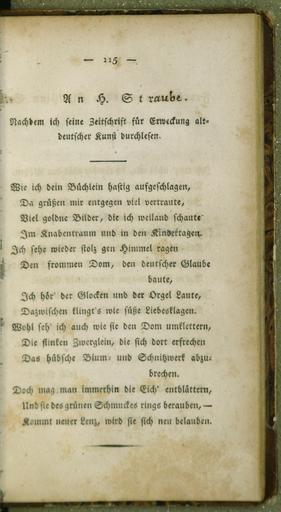 — 115 —
An H. Straube.
Nachdem ich seine Zeitschrift für Erweckung alt-
deutscher Kunst durchlesen.
Wie ich dein Büchlein hastig aufgeschlagen,
Da grüßen mir entgegen viel vertraute,
Viel goldne Bilder, die ich weiland schaute
Im Knabentraum und in den Kindertagen.
Ich sehe wieder stolz gen Himmel ragen
Den frommen Dom, den deutscher Glaube
baute,
Ich hör' der Glocken und der Orgel Laute,
Dazwischen klingt's wie süße Liebesklagen.
Wohl seh' ich auch wie sie den Dom umklettern,
Die flinken Zwerglein, die sich dort erfrechen
Das hübsche Blum- und Schnitzwerk abzu-
brechen.
Doch mag man immerhin die Eich' entblättern,
Und sie des grünen Schmuckes rings berauben, —
Kommt neuer Lenz, wird sie sich neu belauben.